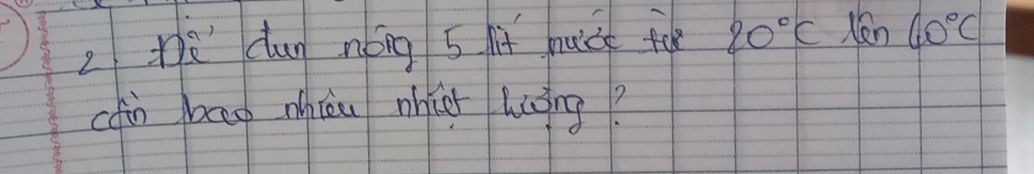 2. Để đun nóng 5 lít nước từ 20°C lên 40°C
cần bao nhiêu nhiệt lượng?